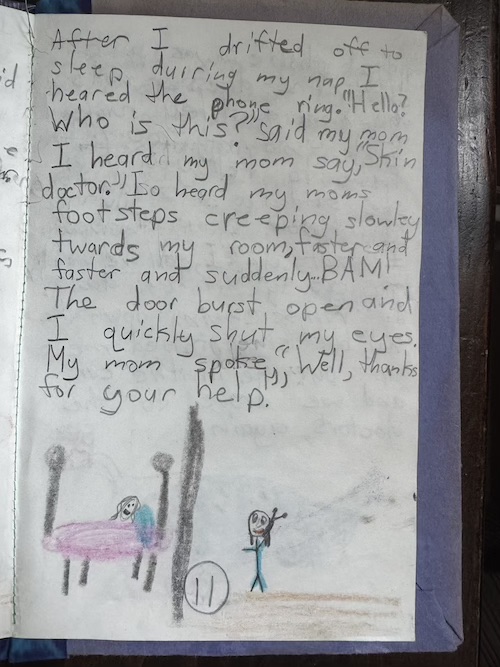 After I drifted off to
sleep duiring my nap I
heared the phone ring. "Hello?
Who is this?" said my mom
I heard my mom say, "Skin
doctor." I so heard my moms
footsteps creeping slowley
twards my room, faster and
faster and suddenly... BAM!
The door burst open and
I quickly shut my eyes.
My mom spoke, "Well, thanks
for your help."
11